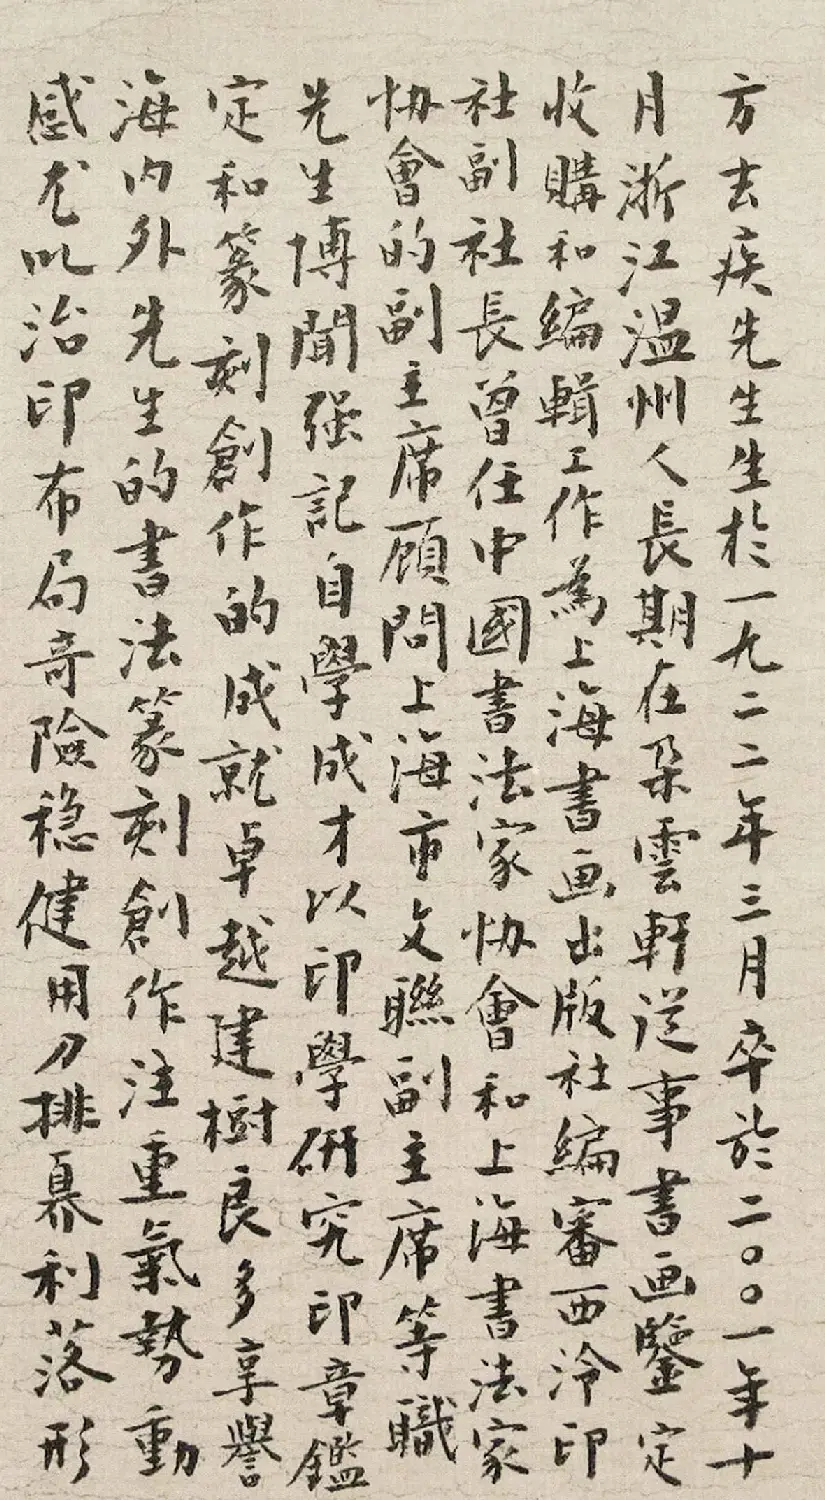 方去疾先生生於一九二二年三月卒於二〇〇一年十
月浙江温州人長期在朵雲軒從事書画鑒定
收購和編輯工作為上海書画出版社編審西泠印
社副社長曾任中國書法家协會和上海書法家
协會的副主席顧問上海市文聯副主席等職
先生博聞强記自學成才以印學研究印章鑑
定和篆刻創作的成就卓越建樹良多享譽
海内外先生的書法篆刻創作注重氣勢動
感尤以治印布局奇險稳健用刀排奡利落形